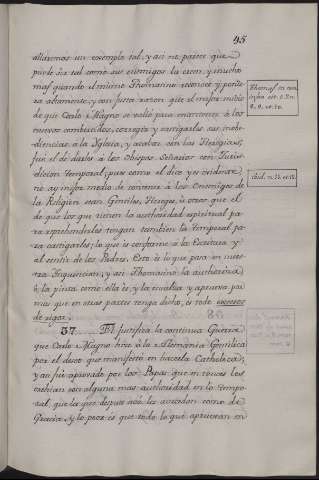 45
alguno un exemplo tal, y asi no parece que
puede ser tal como sus enemigos la creen, y mucho
mas quando el mismo Thomasino reconoce y ponde-
ra altamente, y con justa razon que el mejor medio
de que Carlo Magno se valió para mantener à los
nuevos combertidos, corregia y castigarles sus inobe-
diencias à la Iglesia, y acabar con las Heregias,
fué el de darles à los Obispos Señorios con Juris-
diccion temporal, pues como el dice y es evidente
no ay mejor medio de contener à los Enemigos de
la Religion sean Gentiles, Hereges, ù otros que el
de que los que tienen la authoridad espiritual pa-
ra reprehenderlos tengan tambien la temporal pa-
ra castigarlos; lo que es conforme à la Escritura y
al sentir de los Padres. Esto è lo que pasa en nues-
tra Inquisicion, y asi Thomasino la authoriza
è la pinta como ella es, y la exalta y aprueva por
mas que en otras partes tenga dicho, es todo excesos
de rigor.
Thomas. in
infra
8, 9, et 10.
ibid. n. 11. et 12.
57. El Justifica la continua Guerra
que Carlo Magno hizo à la Alemania Gentilica
por el deseo que manifestó en hacerla Catholica;
y asi fué aprovado por los Papas que entonces los
tenian con alguna mas authoridad en lo tempo-
ral, que la que despues acá les acceden como de
Gracia y lo peor es que todo lo que apruevan en